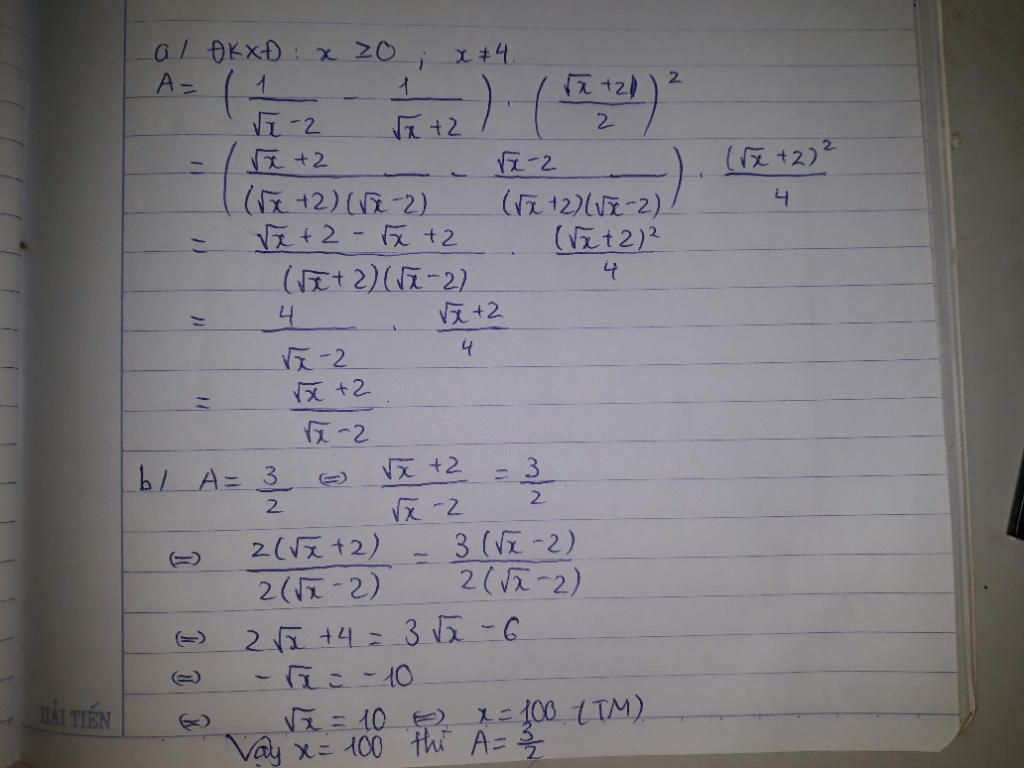 a/ ĐKXĐ: x ≥ 0 ; x ≠ 4.
A = (1/(√x - 2) - 1/(√x + 2)) . ((√x + 2)/2)²
= ((√x + 2)/((√x + 2)(√x - 2)) - (√x - 2)/((√x + 2)(√x - 2))) . (√x + 2)²/4
= (√x + 2 - √x + 2)/((√x + 2)(√x - 2)) . (√x + 2)²/4
= 4/(√x - 2) . (√x + 2)/4
= (√x + 2)/(√x - 2)
b/ A = 3/2 ⇔ (√x + 2)/(√x - 2) = 3/2
⇔ 2(√x + 2)/2(√x - 2) = 3(√x - 2)/2(√x - 2)
⇔ 2√x + 4 = 3√x - 6
⇔ -√x = -10
⇔ √x = 10 ⇔ x = 100 (TM)
Vậy x = 100 thì A = 3/2
HẢI TIẾN